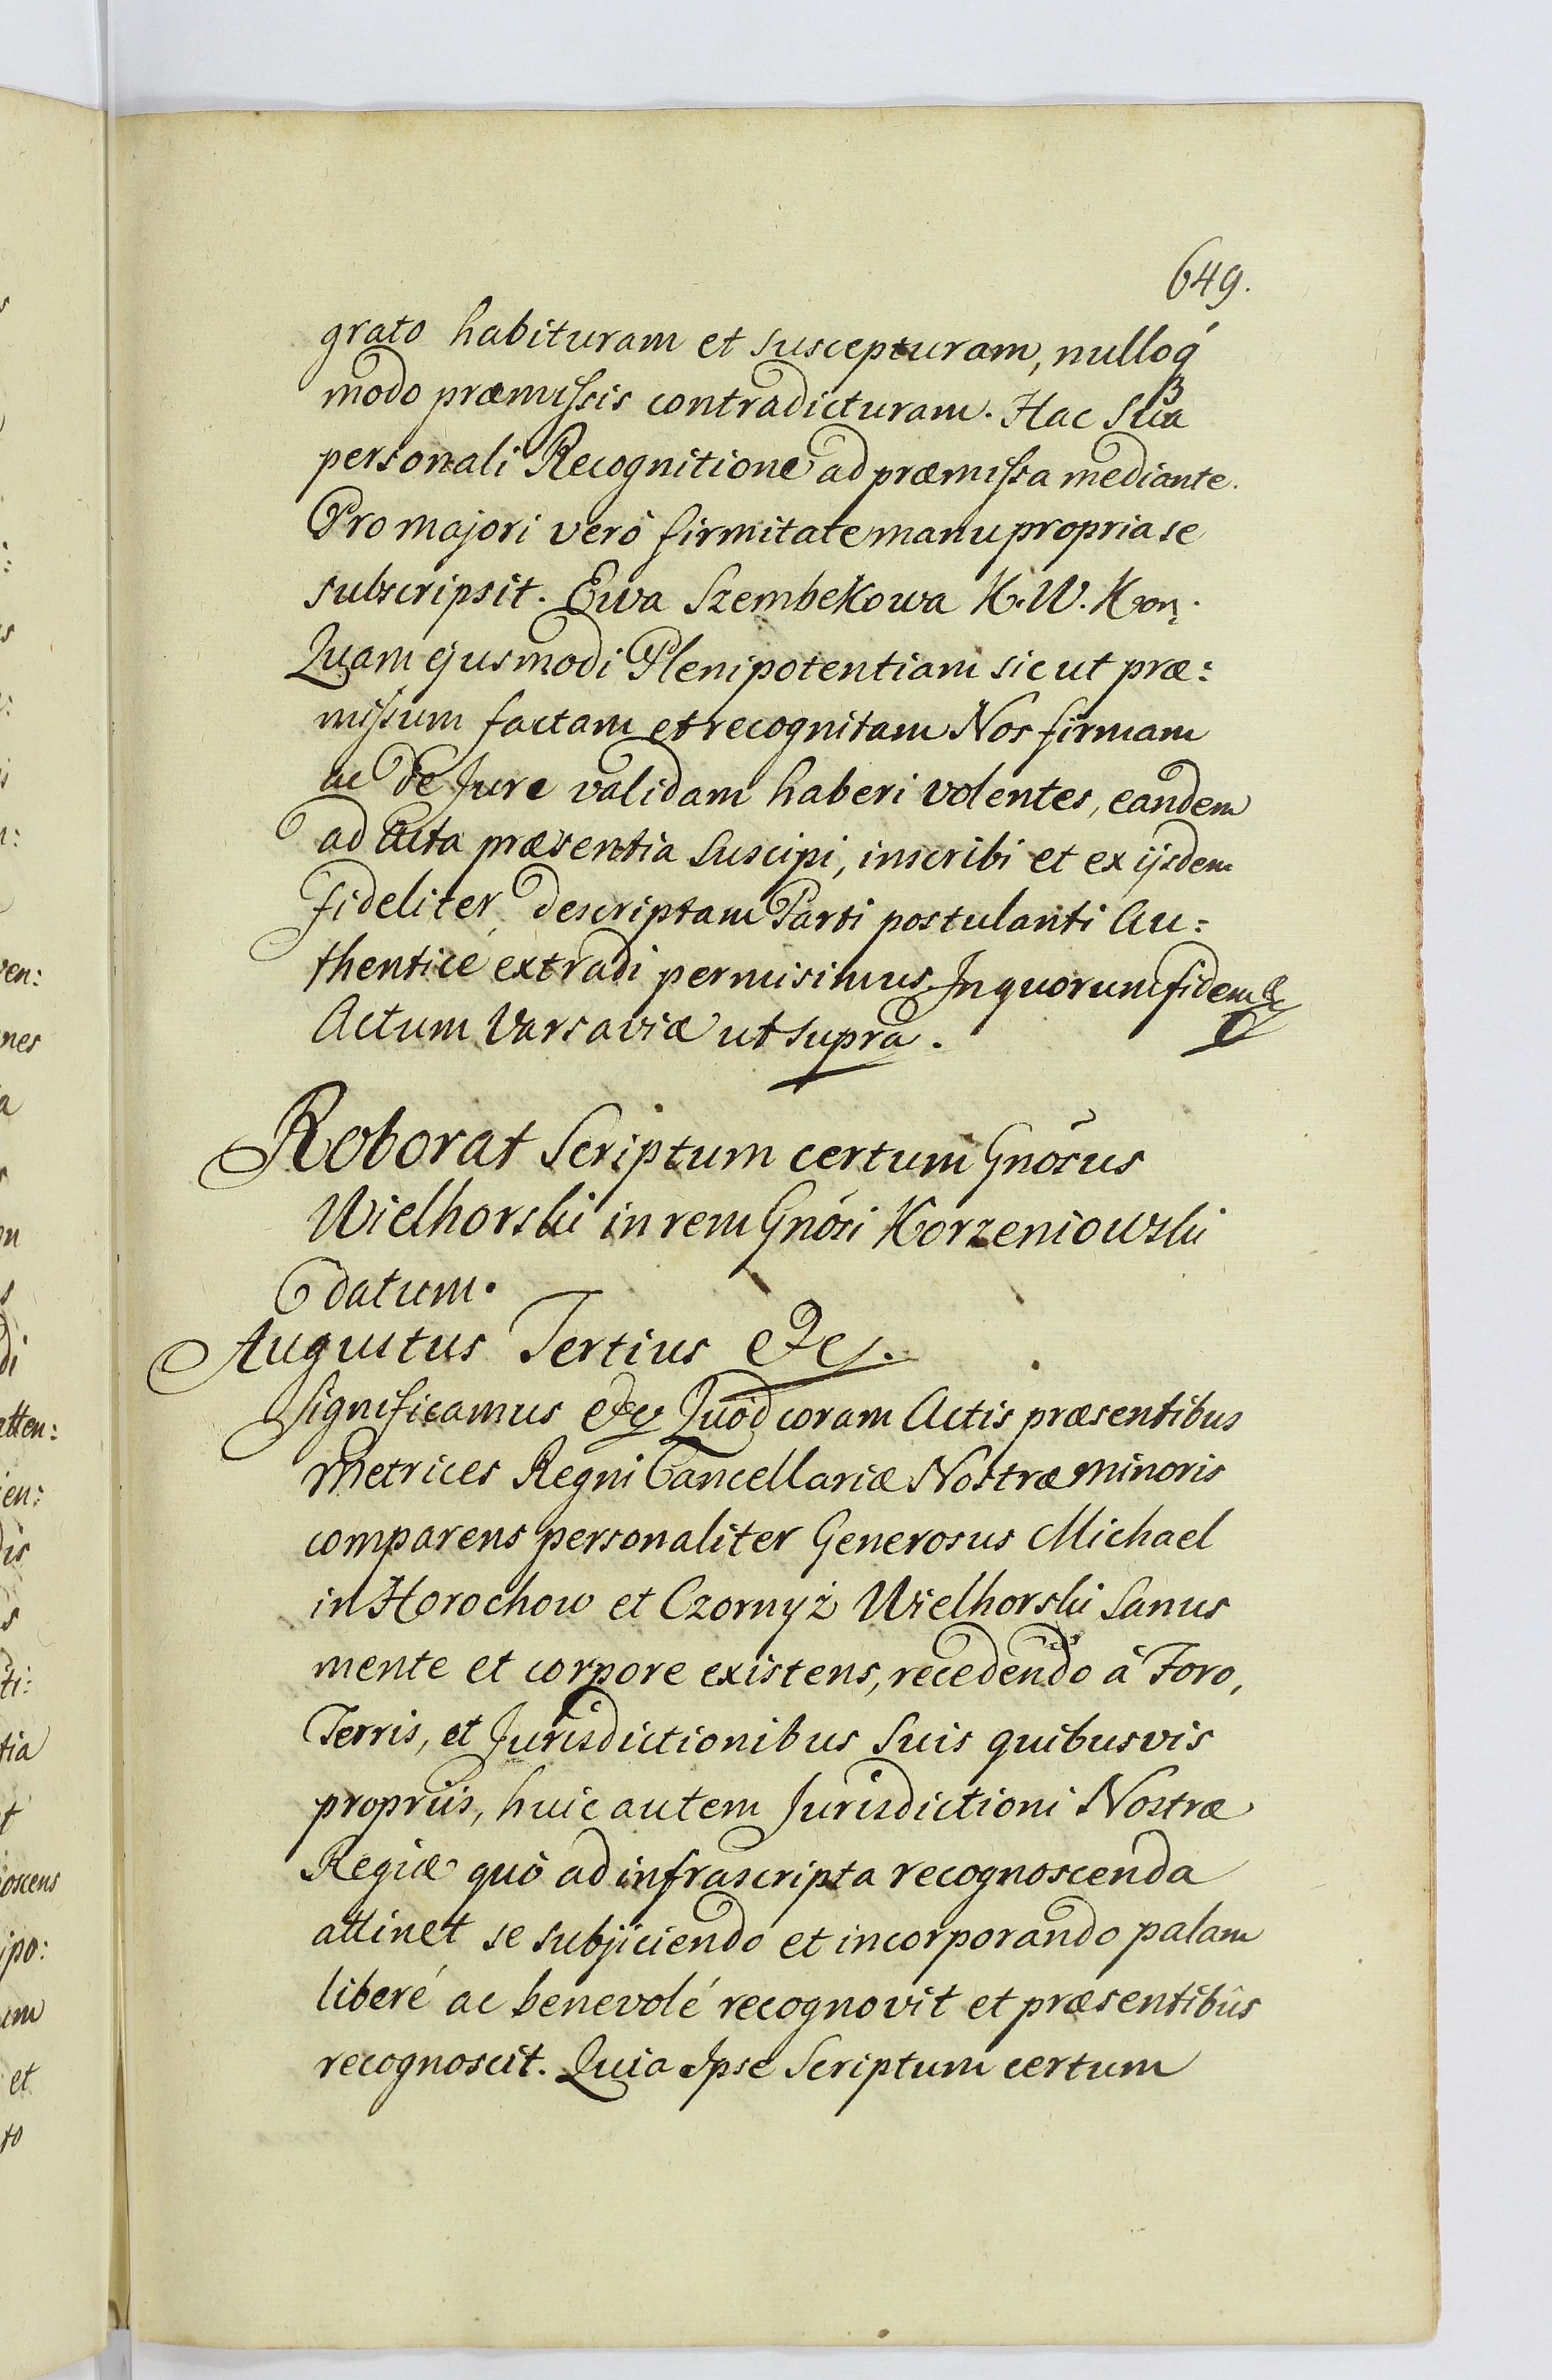 649.
grato habituram et suscepturam, nulloq́
modo præmissis contradicturam. Hac sua
personali Recognitione ad præmissa mediante.
Pro majori verò firmitate manu propria se
subscripsit. Ewa Szembekowa K. W. Kor.
Quam ejusmodi Plenipotentiam sic ut præ:
missum factam et recognitam Nos firmam
ac de Jure validam haberi volentes, eandem
ad Acta præsentia suscipi, inscribi et ex ijsdem
fideliter descriptam Parti postulanti Au:
thenticè extradi permisimus. In quorum fidem &c
Actum Varsaviæ ut supra.
Roborat Scriptum certum Gnõsus
Wielhorski in rem Gnõsi Korzeniowski
datum.
Augustus Tertius &c.
Significamus &c Quòd coram Actis præsentibus
Metrices Regni Cancellariæ Nostræ minoris
comparens personaliter Generosus Michael
in Horochow et Czornyż Wielhorski sanus
mente et corpore existens, recedendo à Foro,
Terris, et Jurisdictionibus suis quibusvis
propriis, huic autem Jurisdictioni Nostræ
Regiæ quò ad infrascripta recognoscenda
attinet se subjiciendo et incorporando palam
liberé ac benevolé recognovit et præsentibûs
recognoscit. Quia Ipse Scriptum certum